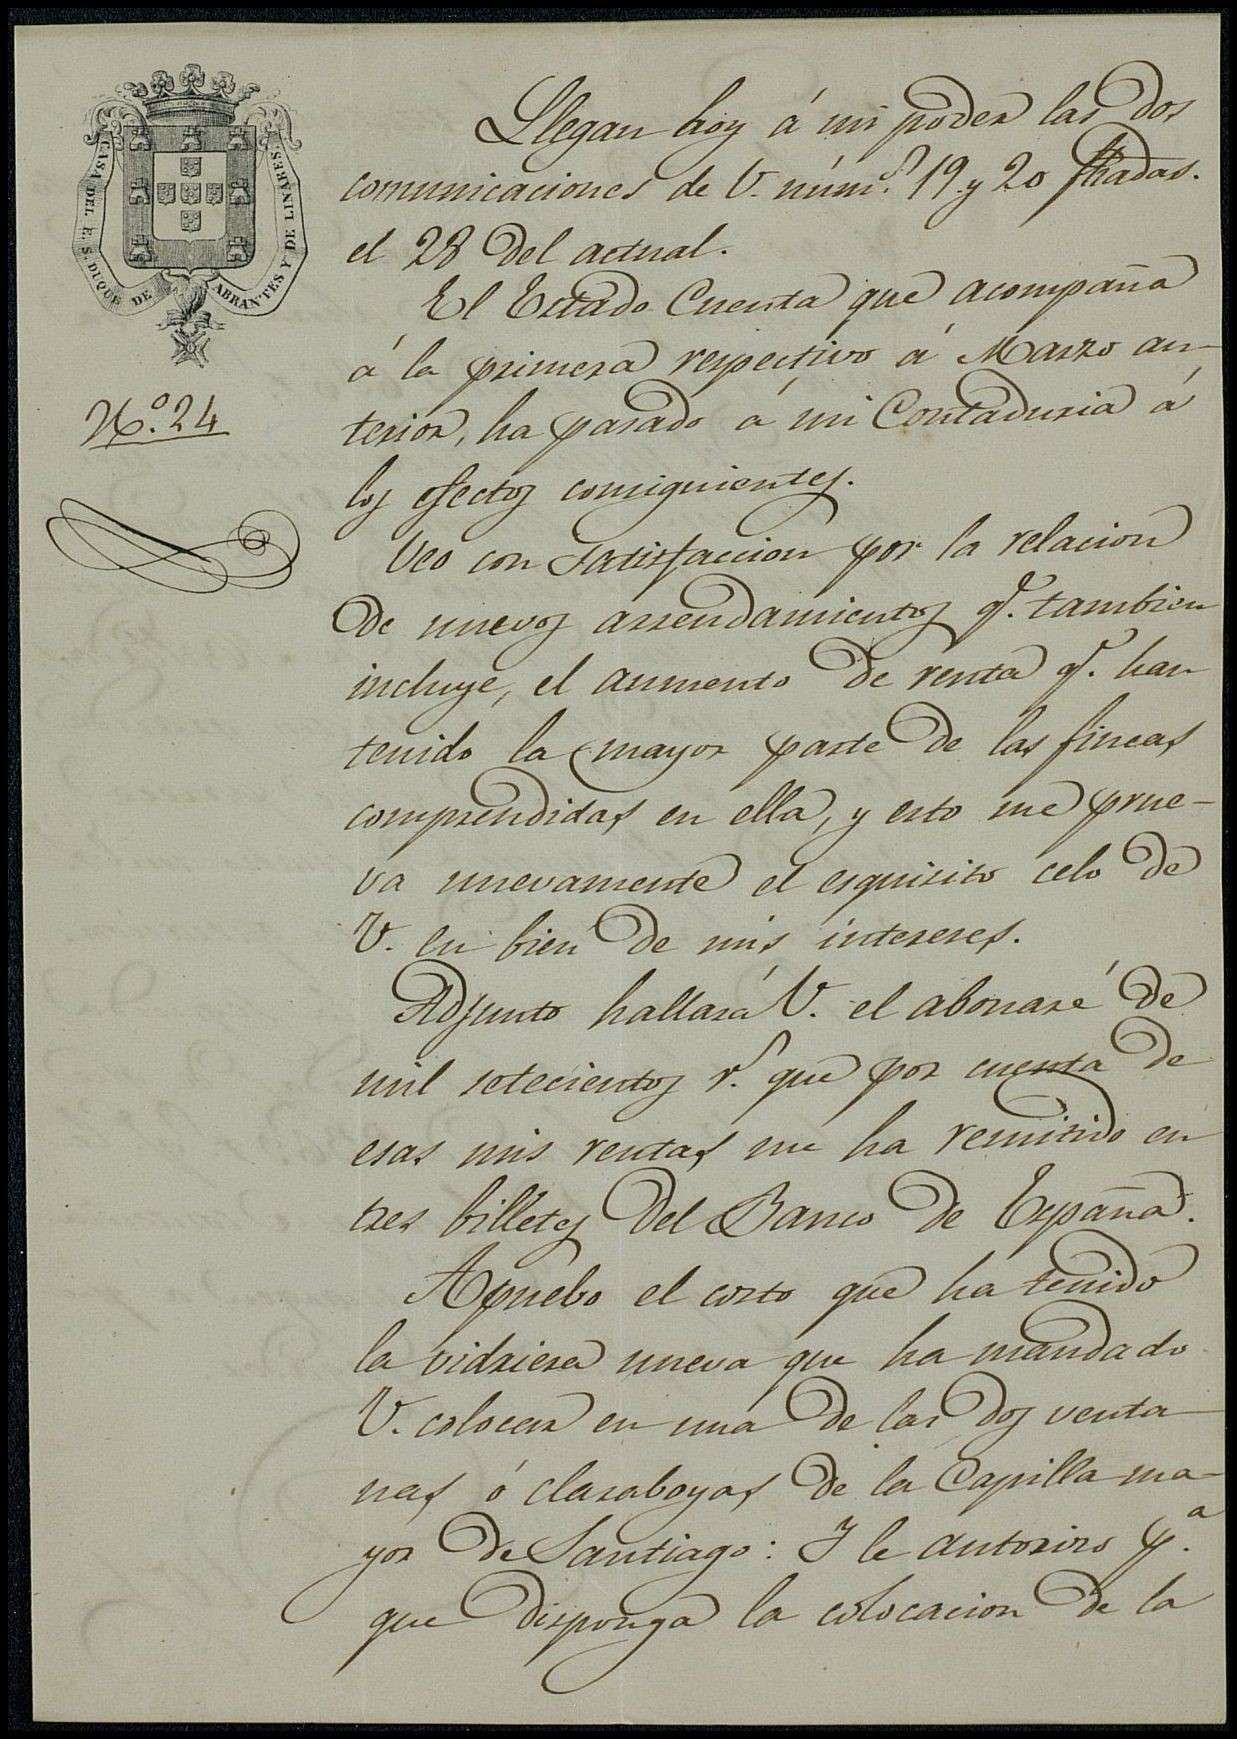 CASA DEL E. S. DUQUE DE ABRANTES Y DE LINARES.
N.º 24
Llegan hoy á mi poder las dos
comunicaciones de V. núm.s 19 y 20 fhadas.
el 28 del actual.
El Estado Cuenta que acompaña
á la primera respectivo á Marzo an-
terior, ha pasado á mi Contaduria á
los efectos consiguientes.
Veo con satisfaccion por la relacion
de nuevos arrendamientos q.e tambien
incluye, el aumento de renta q.e han
tenido la mayor parte de las fincas
comprendidas en ella, y esto me prue-
va nuevamente el esquisito celo de
V. en bien de mis intereses.
Adjunto hallará V. el abonaré de
mil setecientos r.s que por cuenta de
esas mis rentas me ha remitido en
tres billetes del Banco de España.
Apruebo el costo que ha tenido
la vidriera nueva que ha mandado
V. colocar en una de las dos venta
nas ó claraboyas de la Capilla ma-
yor de Santiago: Y le autorizo p.a
que disponga la colocacion de la